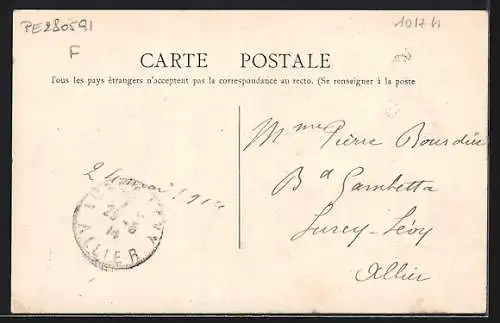 PE280591
F
1017 H
CARTE POSTALE
Tous les pays étrangers n'acceptent pas la correspondance au recto. (Se renseigner à la poste
Mme Pierre Bourdin
Bd Gambetta
Lurcy-Lévy
Allier
24 mai 1914
ALLIER